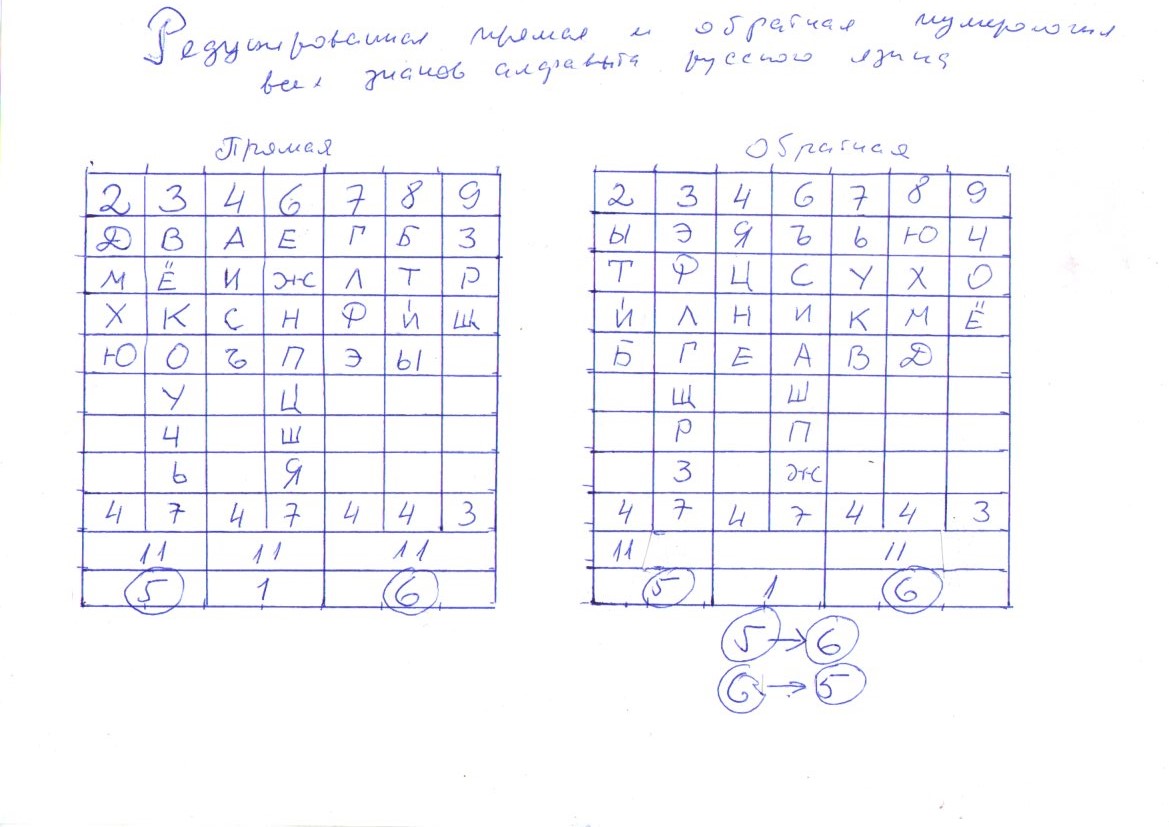 Редуцированная прямая и обратная нумерология
всех знаков алфавита русского языка
Прямая
2 3 4 6 7 8 9
Д В А Е Г Б З
М Ё И Ж Л Т Р
Х К С Н Ф Й Щ
Ю О Ъ П Э Ы
У Ц
Ч Ш
Ь Я
4 7 4 7 4 4 3
11 11 11
5 1 6
Обратная
2 3 4 6 7 8 9
Ы Э Я Ъ Ь Ю Ч
Т Ф Ц С У Х О
Й Л Н И К М Ё
Б Г Е А В Д
Щ Ш
Р П
З Ж
4 7 4 7 4 4 3
11 11
5 1 6
5 → 6
6 → 5